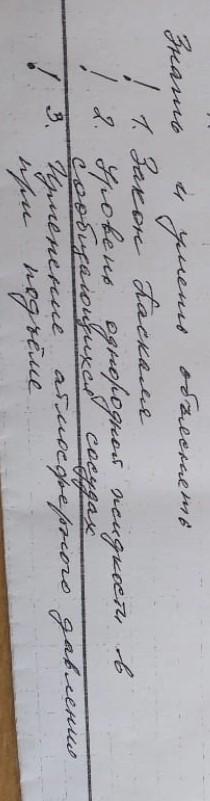 Знать и уметь объяснять
! 1. Закон Паскаля
! 2. Уровень однородной жидкости в
сообщающихся сосудах
! 3. Изменение атмосферного давления
при подъёме